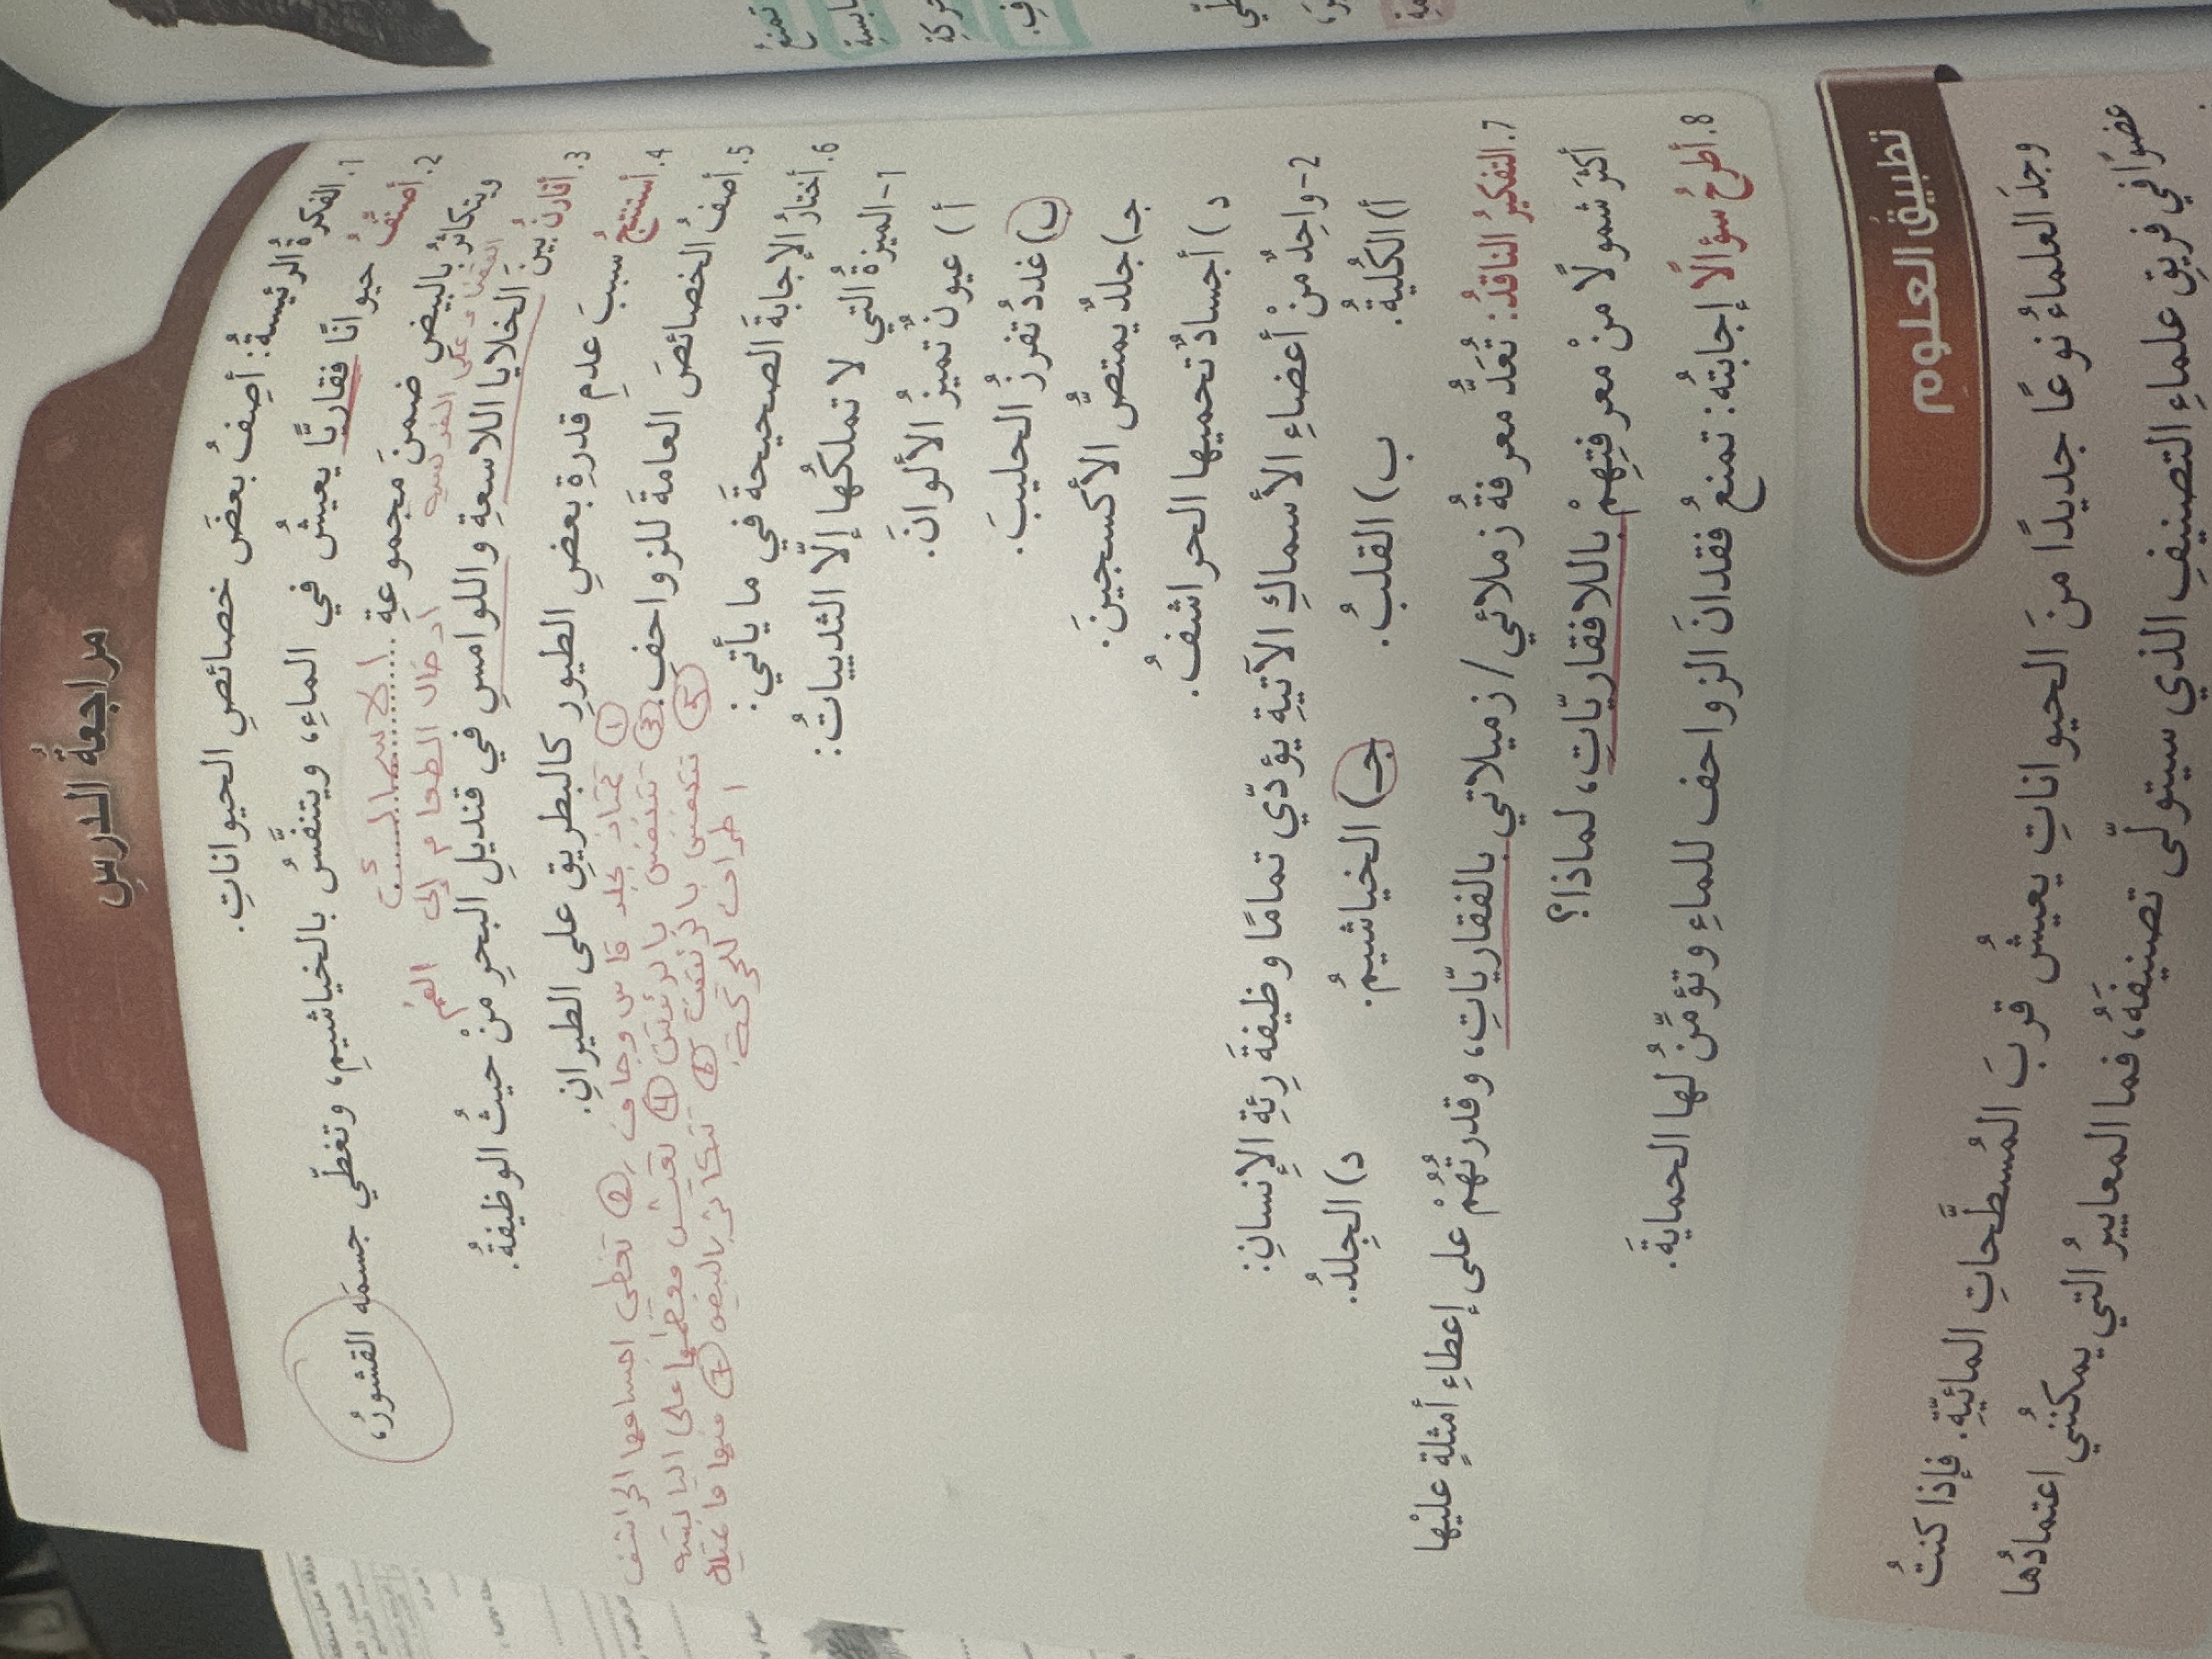 مراجعةُ الدرسِ
1. الفكرةُ الرئيسةُ: أَصِفُ بعضَ خصائصِ الحيواناتِ.
2. أصنّفُ حيوانًا فقاريًّا يعيشُ في الماءِ، ويتنفَّسُ بالخياشيمِ، وتغطّي جسمَه القشورُ،
ويتكاثرُ بالبيضِ ضمنَ مجموعةِ ............
القبض على الفريسة
ادخال الطعام إلى الفم
3. أقارنُ بينَ الخلايا اللاسعةِ واللوامسِ في قنديلِ البحرِ منْ حيثُ الوظيفةُ.
4. أستنتجُ سببَ عدمِ قدرةِ بعضِ الطيورِ كالبطريقِ على الطيرانِ.
5. أصفُ الخصائصَ العامةَ للزواحفِ.
① تمتاز بجلد قاس وجاف ② تغطي اجسامها الحراشف
③ تتنفس بالرئتين ④ تعيش معظمها على اليابسة
⑤ تتكاثر بالبيض
اطراف للحركة
6. أختارُ الإجابةَ الصحيحةَ في ما يأتي:
1- الميزةُ التي لا تملكُها إلّا الثديياتُ:
أ) عيونٌ تميزُ الألوانَ.
ب) غددٌ تفرزُ الحليبَ.
جـ) جلدٌ يمتصُّ الأكسجينَ.
د) أجسادٌ تحميها الحراشفُ.
2- واحِدٌ منْ أعضاءِ الأسماكِ الآتيةِ يؤدّي تمامًا وظيفةَ رِئةِ الإنسانِ:
أ) الكُليةُ. ب) القلبُ. جـ) الخياشيمُ. د) الجِلدُ.
7. التفكيرُ الناقدُ: تُعَدُّ معرفةُ زملائي/ زميلاتي بالفقاريّاتِ، وقدرتُهُمْ على إعطاءِ أمثلةٍ عليْها
أكثرَ شمولًا منْ معرفتِهِمْ باللافقاريّاتِ، لماذا؟
8. أطرحُ سؤالًا إجابتُه: تمنعُ فقدانَ الزواحف للماءِ وتؤمِّنُ لها الحمايةَ.
تطبيقُ العلومِ
وجدَ العلماءُ نوعًا جديدًا منَ الحيواناتِ يعيشُ قربَ المُسطَّحاتِ المائيّةِ. فإذا كنتُ
عضوًا في فريقِ علماءِ التصنيفِ الذي سيتولّى تصنيفَهُ، فما المعاييرُ التي يمكنُني اعتمادُها